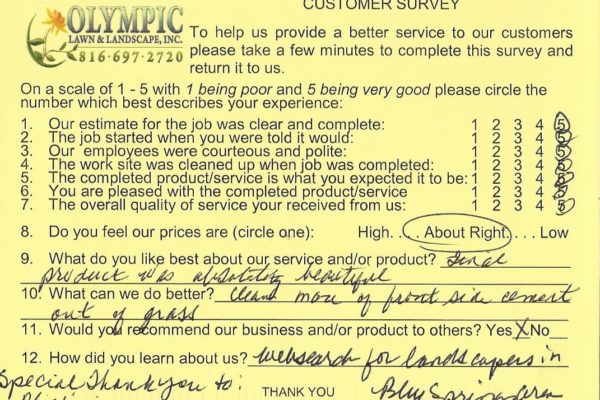 CUSTOMER SURVEY
OLYMPIC
LAWN & LANDSCAPE, INC.
816-697-2720
To help us provide a better service to our customers
please take a few minutes to complete this survey and
return it to us.
On a scale of 1 - 5 with 1 being poor and 5 being very good please circle the
number which best describes your experience:
1. Our estimate for the job was clear and complete: 1 2 3 4 5
2. The job started when you were told it would: 1 2 3 4 5
3. Our employees were courteous and polite: 1 2 3 4 5
4. The work site was cleaned up when job was completed: 1 2 3 4 5
5. The completed product/service is what you expected it to be: 1 2 3 4 5
6. You are pleased with the completed product/service 1 2 3 4 5
7. The overall quality of service your received from us: 1 2 3 4 5
8. Do you feel our prices are (circle one): High. . . . About Right. . . . Low
9. What do you like best about our service and/or product? Final
product was absolutely beautiful
10. What can we do better? Clean more of front side cement
out of grass
11. Would you recommend our business and/or product to others? Yes X No
12. How did you learn about us? Websearch for landscapers in
Special Thank you to: THANK YOU Blue Springs Area